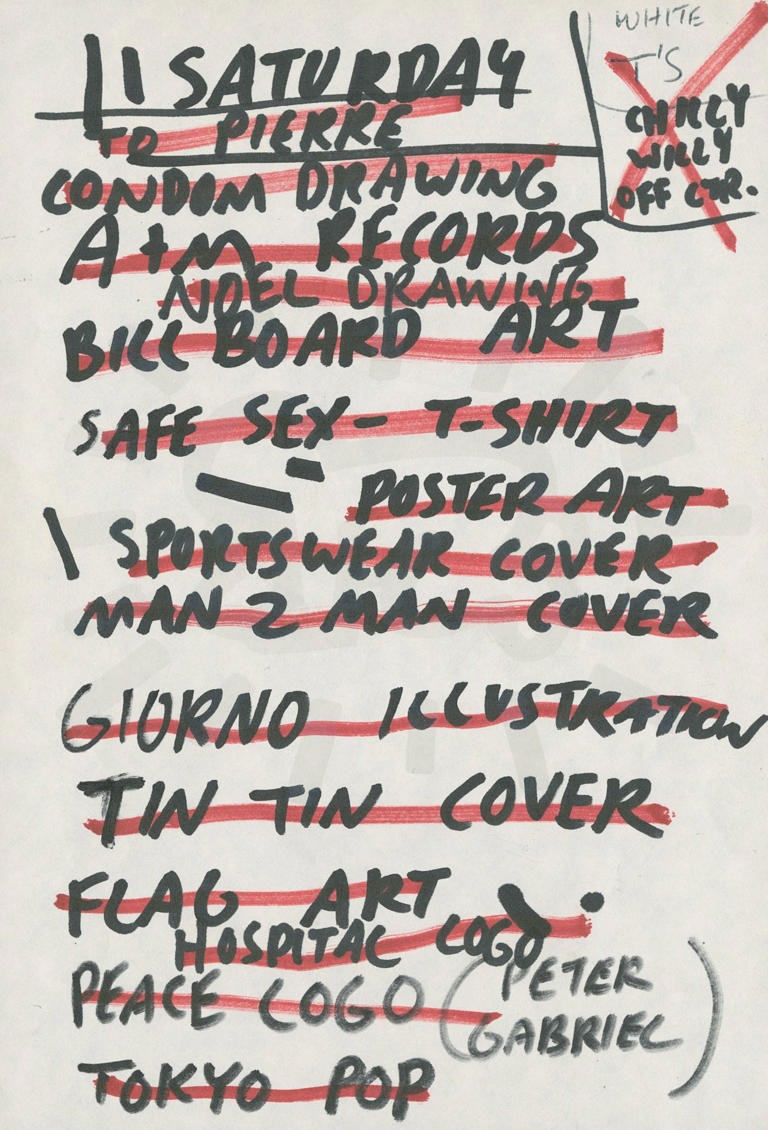 11 SATURDAY
WHITE
T'S
CHILLY
WILLY
OFF CTR.
TO PIERRE
CONDOM DRAWING
A+M RECORDS
NOEL DRAWING
BILLBOARD ART
SAFE SEX - T-SHIRT
POSTER ART
SPORTSWEAR COVER
MAN 2 MAN COVER
GIORNO ILLUSTRATION
TIN TIN COVER
FLAG ART
HOSPITAL LOGO
PEACE LOGO (PETER
GABRIEL)
TOKYO POP